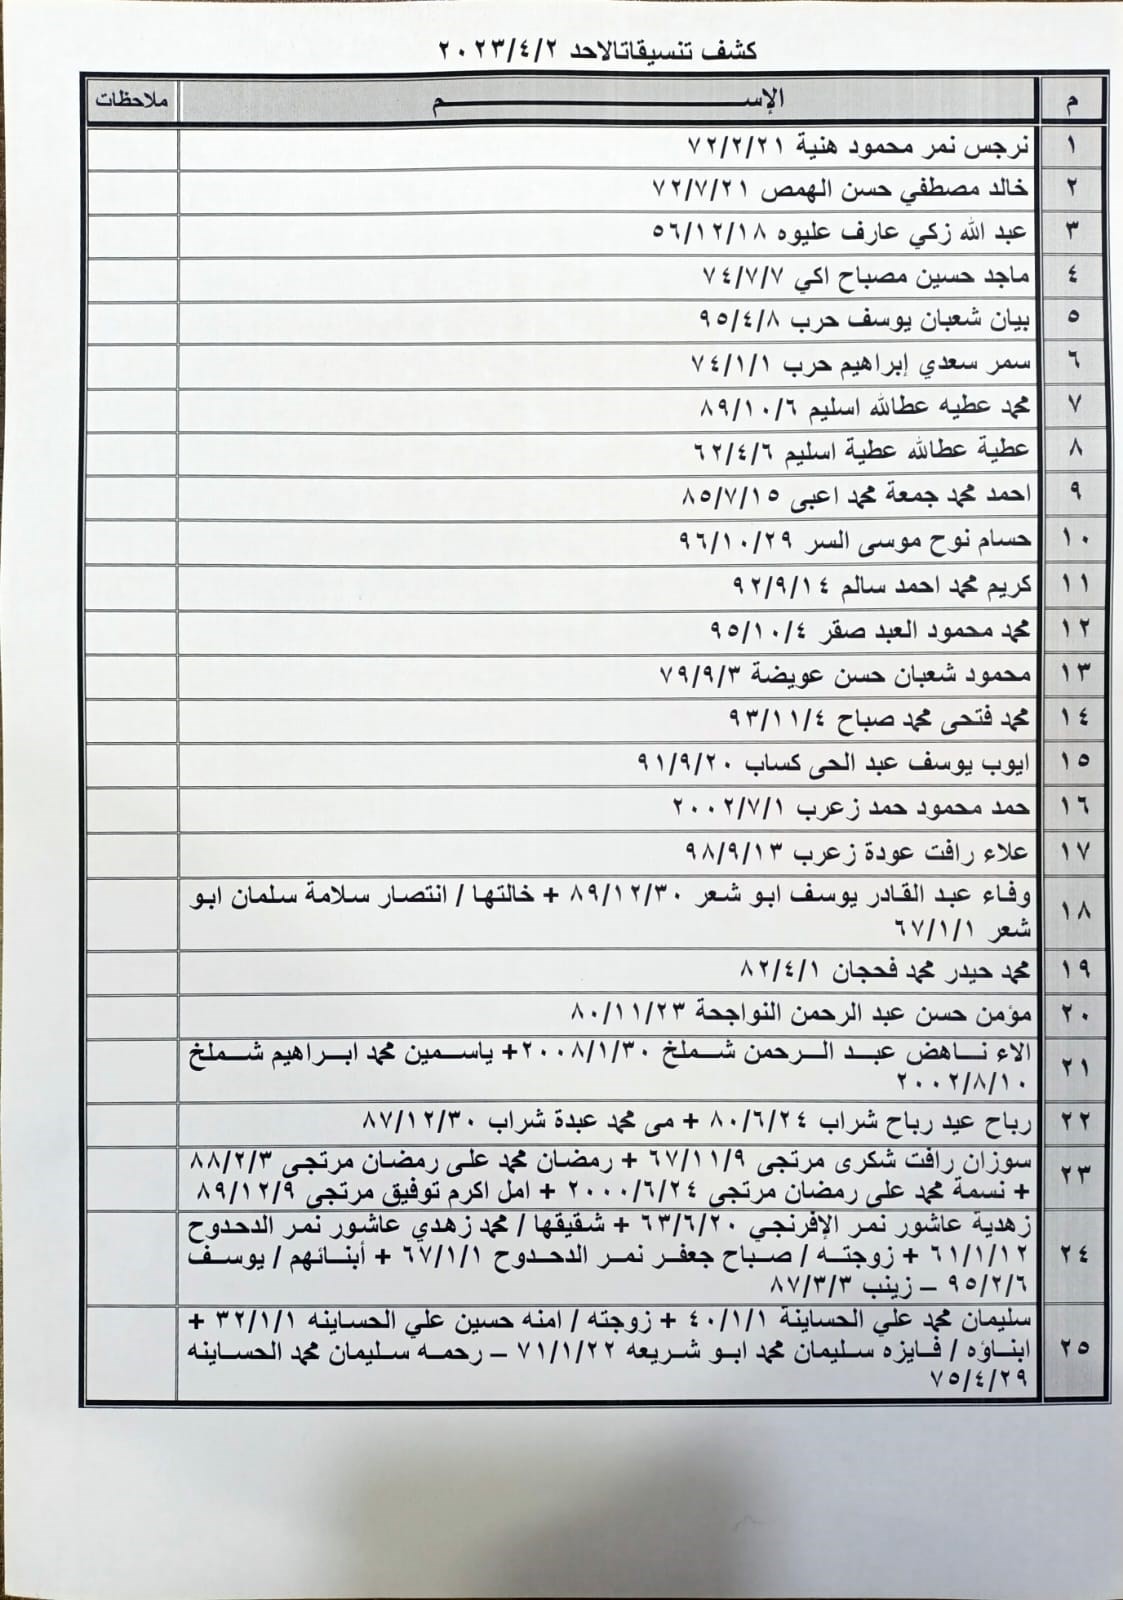 كشف تنسيقاتالاحد ٢٠٢٣/٤/٢
م الإســـــــــم ملاحظات
١ نرجس نمر محمود هنية ٧٢/٢/٢١
٢ خالد مصطفي حسن الهمص ٧٢/٧/٢١
٣ عبد الله زكي عارف عليوه ٥٦/١٢/١٨
٤ ماجد حسين مصباح اكي ٧٤/٧/٧
٥ بيان شعبان يوسف حرب ٩٥/٤/٨
٦ سمر سعدي إبراهيم حرب ٧٤/١/١
٧ محمد عطيه عطالله اسليم ٨٩/١٠/٦
٨ عطية عطالله عطية اسليم ٦٢/٤/٦
٩ احمد محمد جمعة محمد اعبى ٨٥/٧/١٥
١٠ حسام نوح موسى السر ٩٦/١٠/٢٩
١١ كريم محمد احمد سالم ٩٢/٩/١٤
١٢ محمد محمود العبد صقر ٩٥/١٠/٤
١٣ محمود شعبان حسن عويضة ٧٩/٩/٣
١٤ محمد فتحى محمد صباح ٩٣/١١/٤
١٥ ايوب يوسف عبد الحى كساب ٩١/٩/٢٠
١٦ حمد محمود حمد زعرب ٢٠٠٢/٧/١
١٧ علاء رافت عودة زعرب ٩٨/٩/١٣
١٨ وفاء عبد القادر يوسف ابو شعر ٨٩/١٢/٣٠ + خالتها / انتصار سلامة سلمان ابو
شعر ٦٧/١/١
١٩ محمد حيدر محمد فحجان ٨٢/٤/١
٢٠ مؤمن حسن عبد الرحمن النواجحة ٨٠/١١/٢٣
٢١ الاء ناهض عبد الرحمن شملخ ٢٠٠٨/١/٣٠+ ياسمين محمد ابراهيم شملخ
٢٠٠٢/٨/١٠
٢٢ رباح عيد رباح شراب ٨٠/٦/٢٤ + مى محمد عبدة شراب ٨٧/١٢/٣٠
٢٣ سوزان رافت شكرى مرتجى ٦٧/١١/٩ + رمضان محمد على رمضان مرتجى ٨٨/٢/٣
+ نسمة محمد على رمضان مرتجى ٢٠٠٠/٦/٢٤ + امل اكرم توفيق مرتجى ٨٩/١٢/٩
٢٤ زهدية عاشور نمر الإفرنجي ٦٣/٦/٢٠ + شقيقها / محمد زهدي عاشور نمر الدحدوح
٦١/١/١٢ + زوجته / صباح جعفر نمر الدحدوح ٦٧/١/١ + أبنائهم / يوسف
٩٥/٢/٦ – زينب ٨٧/٣/٣
٢٥ سليمان محمد علي الحساينة ٤٠/١/١ + زوجته / امنه حسين علي الحساينه ٣٢/١/١ +
ابناؤه / فايزه سليمان محمد ابو شريعه ٧١/١/٢٢ – رحمه سليمان محمد الحساينه
٧٥/٤/٢٩